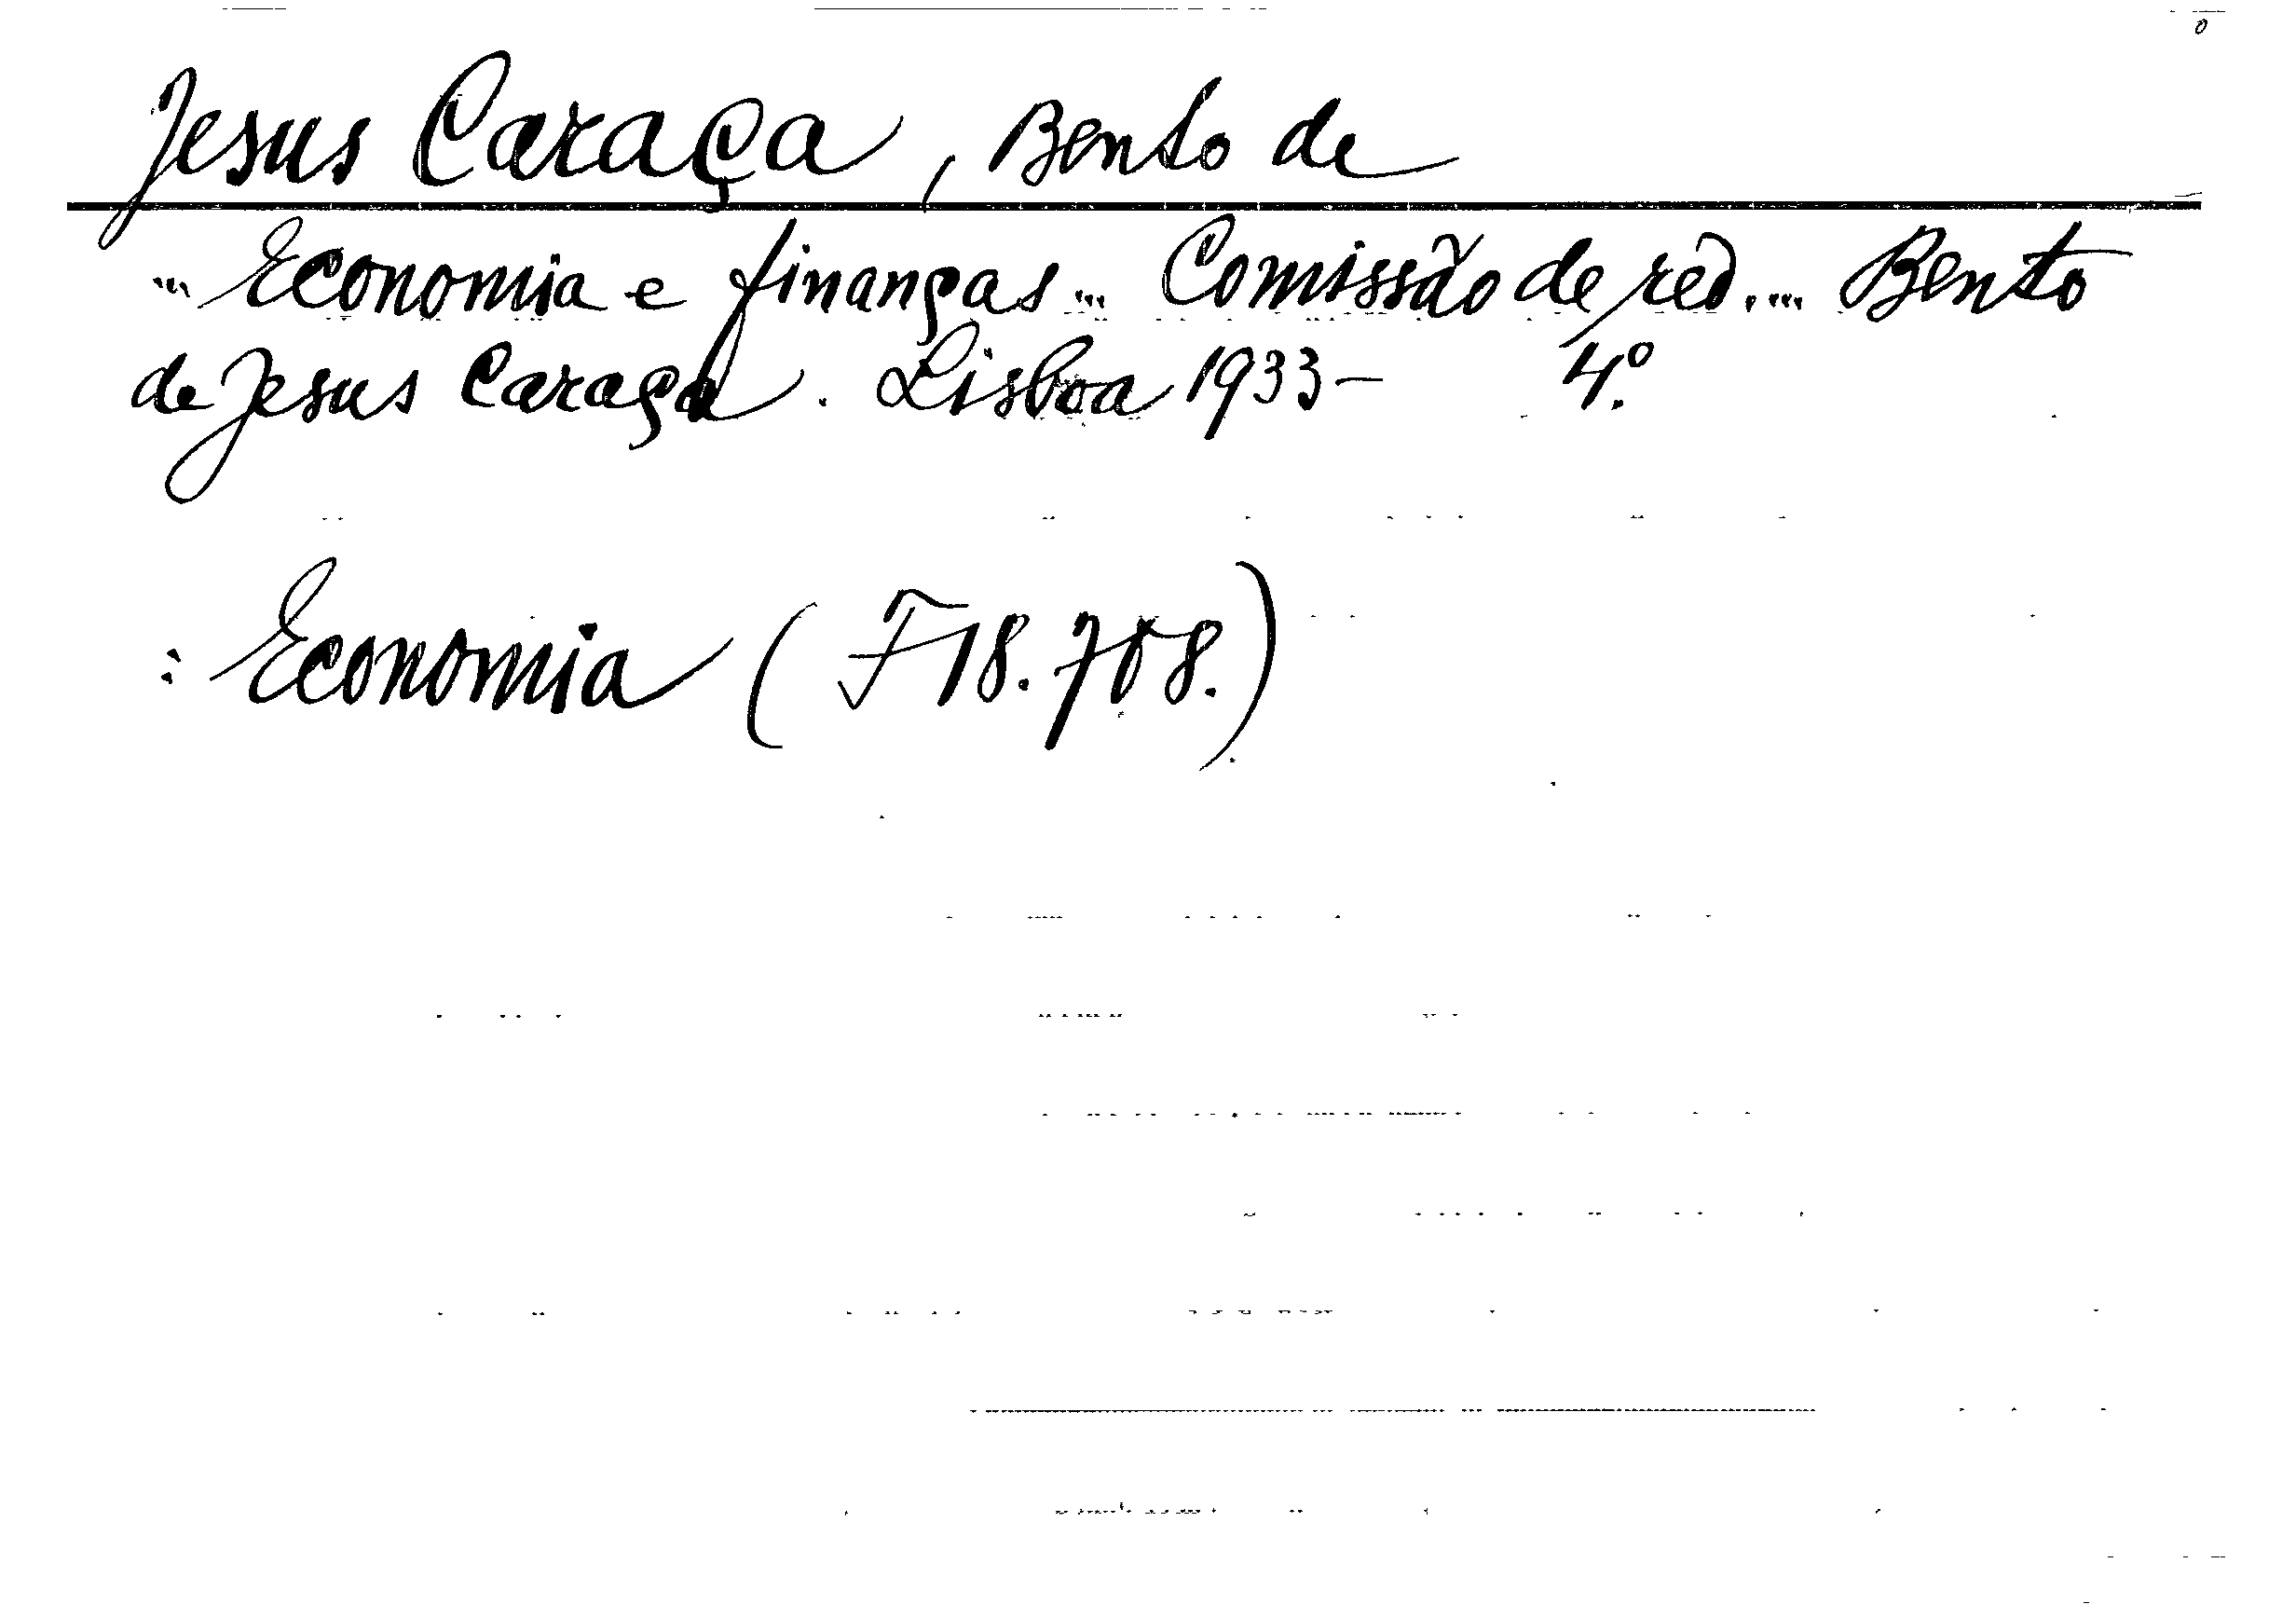 Jesus Caraça, Bento de
... Economia e finanças ... Comissão de red. ... Bento
de Jesus Caraça. Lisboa 1933- 4.º
: Economia (F18.708.)